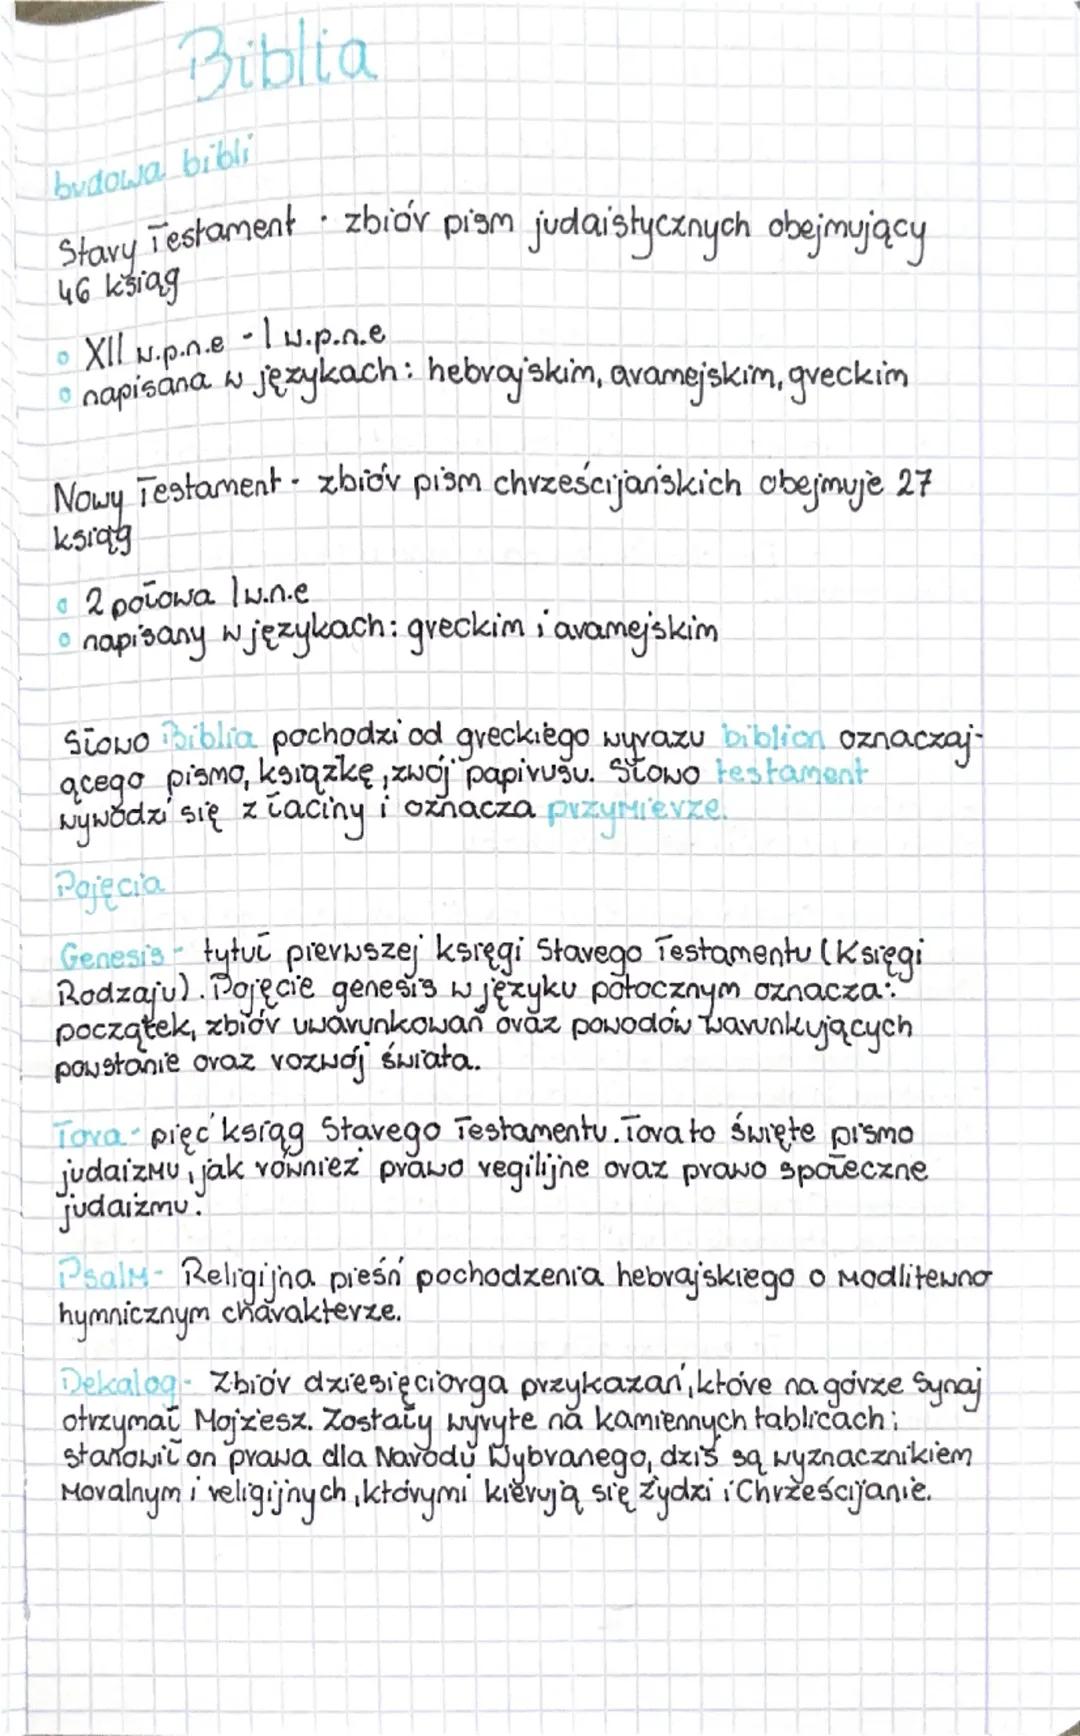 Biblia
budowa bibli
Stary Testament - zbiór pism judaistycznych obejmujący
46 ksiąg
XII w.p.n.e - I w.p.n.e
napisana w językach: hebrajskim, aramejskim, greckim
Nowy Testament - zbiór pism chrześcijańskich obejmuje 27
ksiąg
2 połowa I w.n.e
napisany w językach: greckim i aramejskim
Słowo Biblia pochodzi od greckiego wyrazu biblion oznaczaj-
ącego pismo, książkę, zwój papirusu. Słowo testament
wywodzi się z łaciny i oznacza przymierze.
Pojęcia
Genesis - tytuł pierwszej księgi Starego Testamentu (Księgi
Rodzaju). Pojęcie genesis w języku potocznym oznacza:
początek, zbiór uwarunkowań oraz powodów warunkujących
powstanie oraz rozwój świata.
Tora - pięć ksiąg Starego Testamentu. Tora to święte pismo
judaizmu, jak również prawo regilijne oraz prawo społeczne
judaizmu.
Psalm - Religijna pieśń pochodzenia hebrajskiego o modlitewno
hymnicznym charakterze.
Dekalog - Zbiór dziesięciorga przykazań, które na górze Synaj
otrzymał Mojżesz. Zostały wyryte na kamiennych tablicach i
stanowił on prawa dla Narodu Wybranego, dziś są wyznacznikiem
moralnym i religijnych, którymi kierują się Żydzi i Chrześcijanie.